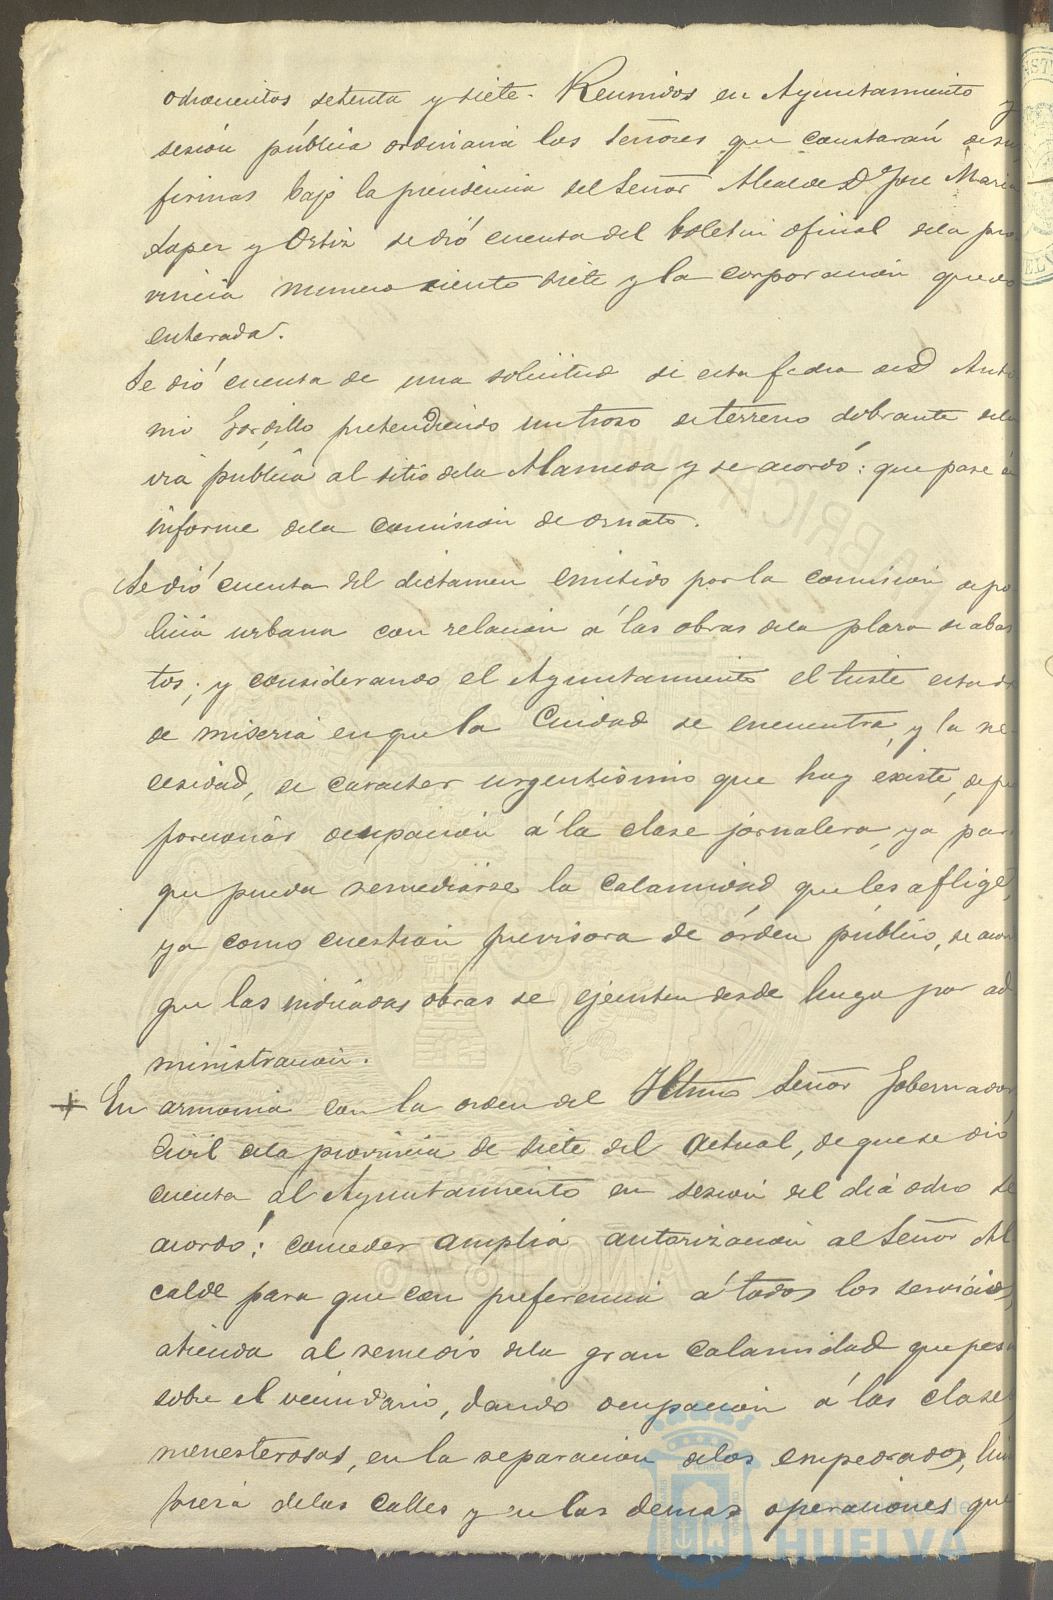 ochocientos setenta y siete. Reunidos en Ayuntamiento y
sesión pública ordinaria los Señores que constarán de su
firmas bajo la presidencia del Señor Alcalde Dn José Maria
Laper y Ortiz se dió cuenta del boletin oficial dela pro
vincia numero ciento siete y la corporación quedó
enterada.
Se dió cuenta de una solicitud de esta fecha de Dn Anto
nio Gordillo pretendiendo un trozo de terreno sobrante dela
via pública al sitio dela Alameda y se acordó: que pase á
informe dela comision de ornato.
Se dió cuenta del dictamen emitido por la comisión de po
licia urbana con relación á las obras dela plaza de abas
tos; y considerando el Ayuntamiento el triste estado
de miseria en que la Ciudad se encuentra, y la ne
cesidad, de caracter urgentisimo que hoy existe, de pro
porcionár ocupación á la clase jornalera, ya por
que pueda remediárse la calamidad que les aflige,
ya como cuestion previsora de órden público, se acor
que las indicadas obras se ejecuten desde luego por ad
ministracion.
+ En armonia con la orden del Iltmo Señor Gobernador
Civil dela provincia de siete del actual, de que se dió
cuenta al Ayuntamiento en sesión del dia ocho se
acordó: conceder amplia autorización al Señor Al
calde para que con preferencia á todos los servicios,
atienda al remedio dela gran calamidad que pesa
sobre el vecindario, dando ocupación á las clases
menesterosas, en la reparacion delos empedrados, lim
pieza delas calles y en las demas operaciones que
Ayuntamiento de
HUELVA